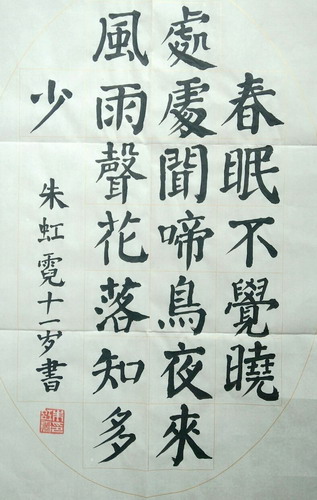 春眠不覺曉
處處聞啼鳥夜來
風雨聲花落知多
少
朱虹霓十一岁書